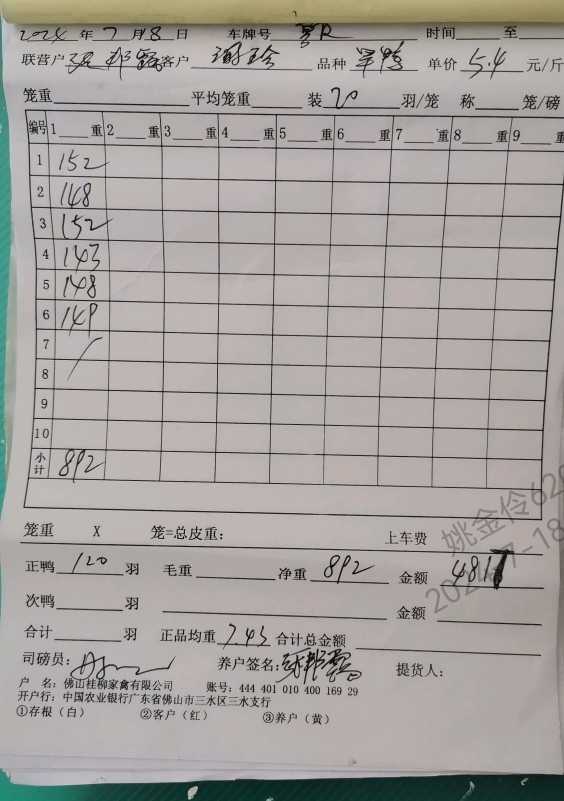 2024 年 7 月 8 日 车牌号 时间 至
联营户 客户 谢玲 品种 单鸭 单价 5.4 元/斤
笼重 平均笼重 装 20 羽/笼 称 笼/磅
编号 1 重 2 重 3 重 4 重 5 重 6 重 7 重 8 重 9 重
1 152
2 148
3 152
4 143
5 148
6 149
7
8
9
10
小计 892
笼重 X 笼=总皮重: 上车费
姚金伶620
正鸭 120 羽 毛重 净重 892 金额 4817
次鸭 羽 金额
合计 羽 正品均重 7.43 合计总金额
司磅员: 养户签名: 提货人:
户 名: 佛山桂柳家禽有限公司 账号: 444 401 010 400 169 29
开户行: 中国农业银行广东省佛山市三水区三水支行
①存根(白) ②客户(红) ③养户(黄)